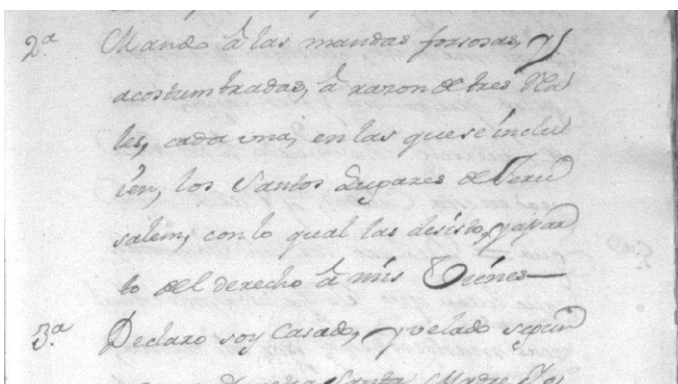 2ª. Mando â las mandas forsosas, y
acostumbradas, â razon de tres Rea
les, cada una, en las que se inclu
ien, los Santos Lugares de Jeru
salem, con lo qual las desisto, y apar
to del derecho â mis Vienes
3ª. Declaro soy Casado, y velado segun
Santa Madre